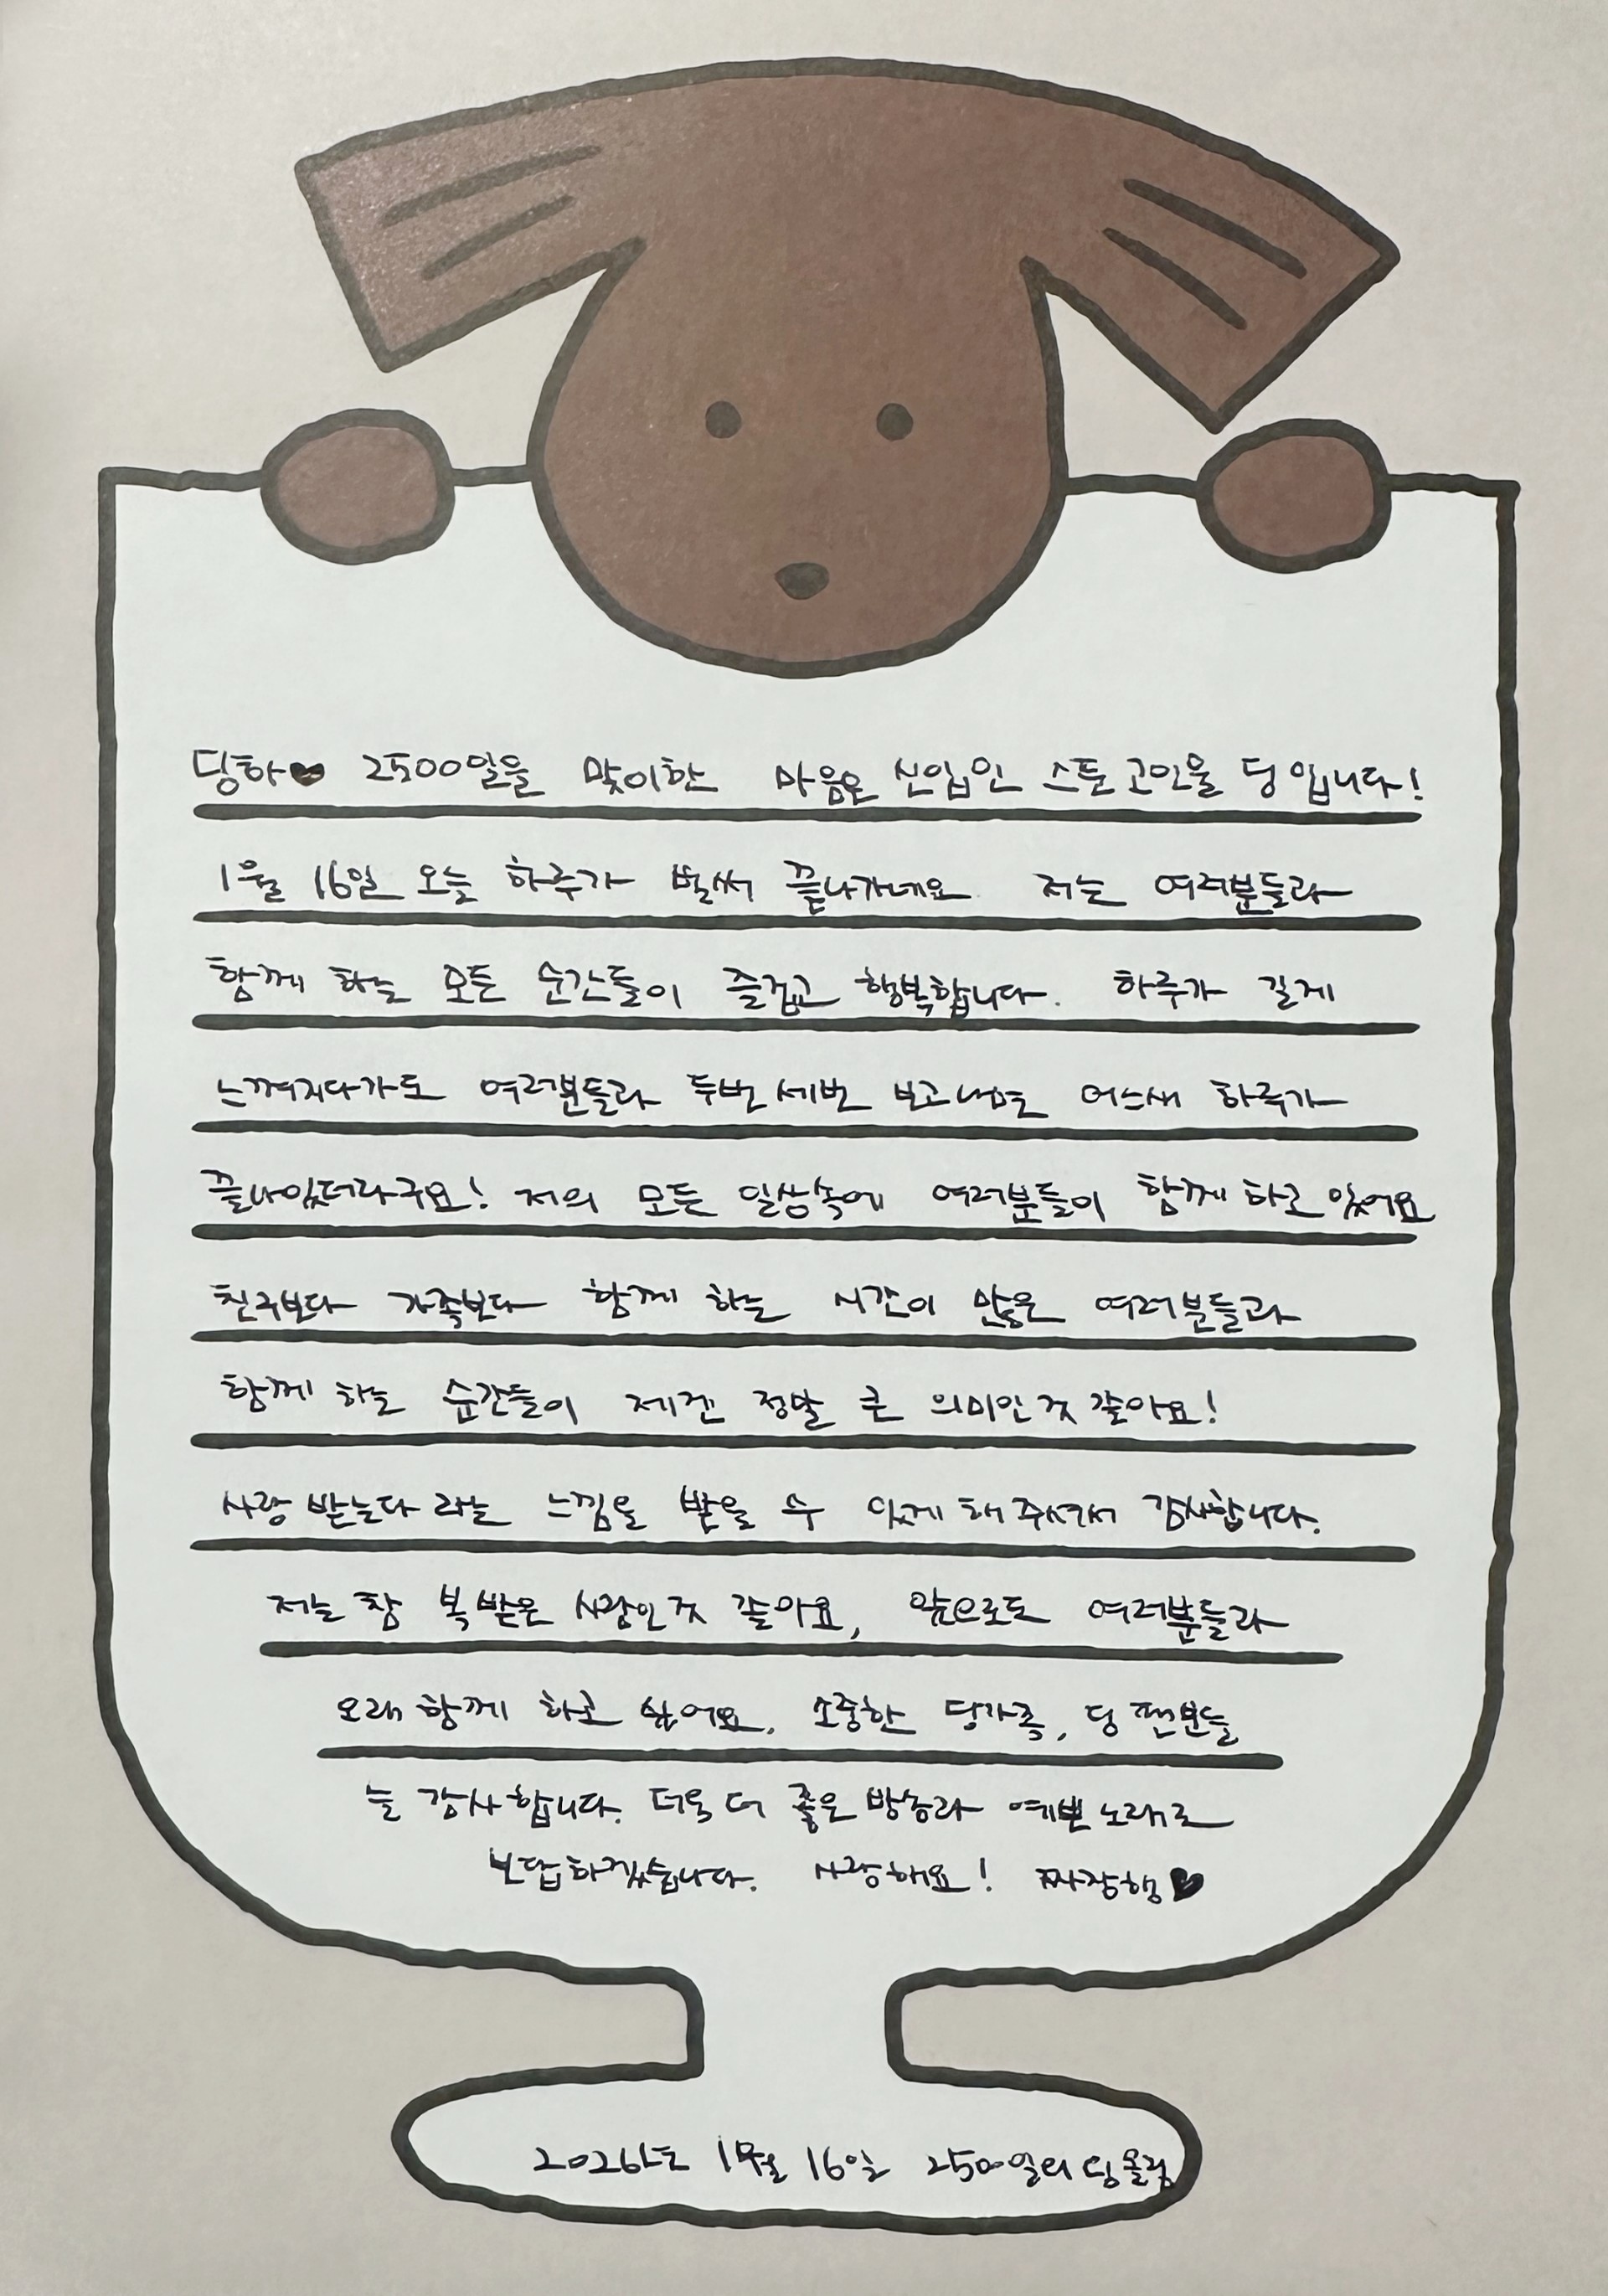 딩하♥ 2500일을 맞이한 마음은 신입인 스푼 고인물 딩 입니다!
1월 16일 오늘 하루가 벌써 끝나가네요 저는 여러분들과
함께 하는 모든 순간들이 즐겁고 행복합니다. 하루가 길게
느껴지다가도 여러분들과 두번 세번 보고나면 어느새 하루가
끝나있더라구요! 저의 모든 일상속에 여러분들이 함께 하고 있어요
친구보다 가족보다 함께 하는 시간이 많은 여러분들과
함께 하는 순간들이 제겐 정말 큰 의미인 것 같아요!
사랑 받는다 라는 느낌을 받을 수 있게 해 주셔서 감사합니다.
저는 참 복 받은 사람인 것 같아요, 앞으로도 여러분들과
오래 함께 하고 싶어요. 소중한 딩가족, 딩 팬분들
늘 감사합니다. 더욱 더 좋은 방송과 예쁜 노래로
보답하겠습니다. 사랑해요! 짜장행♥
2026년 1월 16일 2500일의 딩 올림